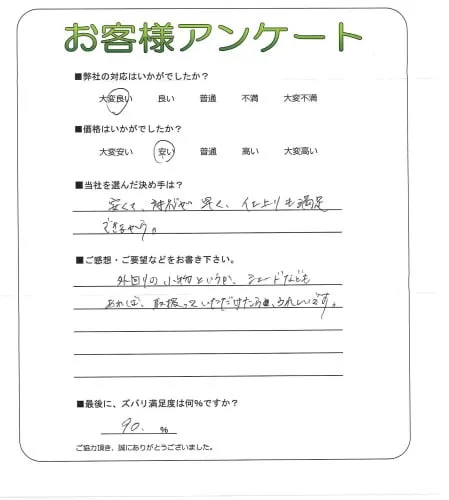 お客様アンケート
■弊社の対応はいかがでしたか？
大変良い 良い 普通 不満 大変不満
■価格はいかがでしたか？
大変安い 安い 普通 高い 大変高い
■当社を選んだ決め手は？
安くて、対応が早く、仕上りも満足
できるから。
■ご感想・ご要望などをお書き下さい。
外回りの小物というか、シェードなども
あれば、取扱っていただけたら、うれしいです。
■最後に、ズバリ満足度は何%ですか？
90. %
ご協力頂き、誠にありがとうございました。